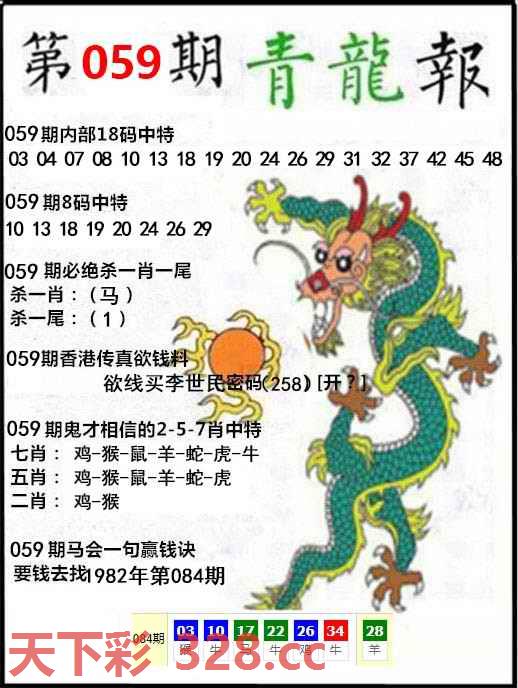 第059期青龍報
059期内部18码中特
03 04 07 08 10 13 18 19 20 24 26 29 31 32 37 42 45 48
059期8码中特
10 13 18 19 20 24 26 29
059 期必绝杀一肖一尾
杀一肖：（马）
杀一尾：（1）
059期香港传真欲钱料
欲线买李世民密码(258) [开？]
059期鬼才相信的2-5-7肖中特
七肖： 鸡-猴-鼠-羊-蛇-虎-牛
五肖： 鸡-猴-鼠-羊-蛇-虎
二肖： 鸡-猴
059期马会一句赢钱诀
要钱去找1982年第084期
084期 03 10 17 22 26 34 28
猴 牛 马 牛 鸡 牛 羊
天下彩 328.cc